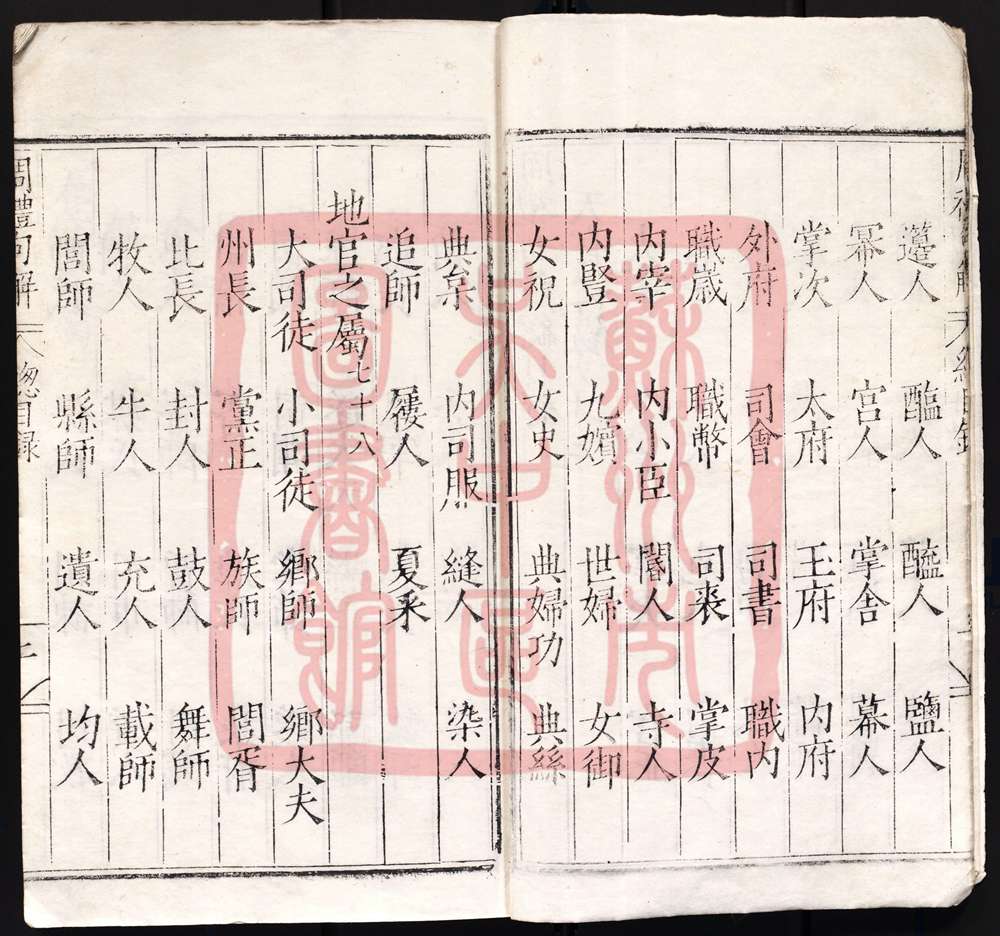 籩人 醢人 醯人 鹽人
冪人 宮人 掌舍 幕人
掌次 太府 王府 內府
外府 司會 司書 職內
職歲 職幣 司裘 掌皮
內宰 內小臣 閽人 寺人
內豎 九嬪 世婦 女御
女祝 女史 典婦功 典絲
典枲 內司服 縫人 染人
追師 屨人 夏采
地官之屬七十八
大司徒 小司徒 鄉師 鄉大夫
州長 黨正 族師 閭胥
比長 封人 鼓人 舞師
牧人 牛人 充人 載師
閭師 縣師 遺人 均人
周禮句解 總目錄
蘇州市
古區
圖書館